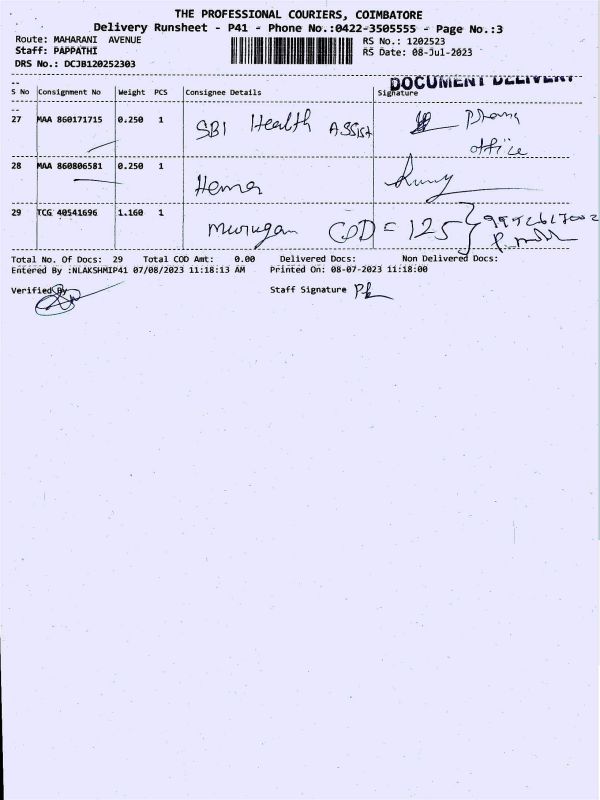 THE PROFESSIONAL COURIERS, COIMBATORE
Delivery Runsheet - P41 - Phone No.:0422-3505555 - Page No.:3
Route: MAHARANI AVENUE
RS No.: 1202523
Staff: PAPPATHI
RS Date: 08-Jul-2023
DRS No.: DCJB120252303
DOCUMENT DELIVERY
S No Consignment No Weight PCS Consignee Details Signature
27 MAA 860171715 0.250 1 SBI Health Assist Pharma
office
28 MAA 860806581 0.250 1 Hema
29 TCG 40541696 1.160 1 Murugan COD = 125
Total No. Of Docs: 29 Total COD Amt: 0.00 Delivered Docs: Non Delivered Docs:
Entered By :NLAKSHMIP41 07/08/2023 11:18:13 AM Printed On: 08-07-2023 11:18:00
Verified By Staff Signature